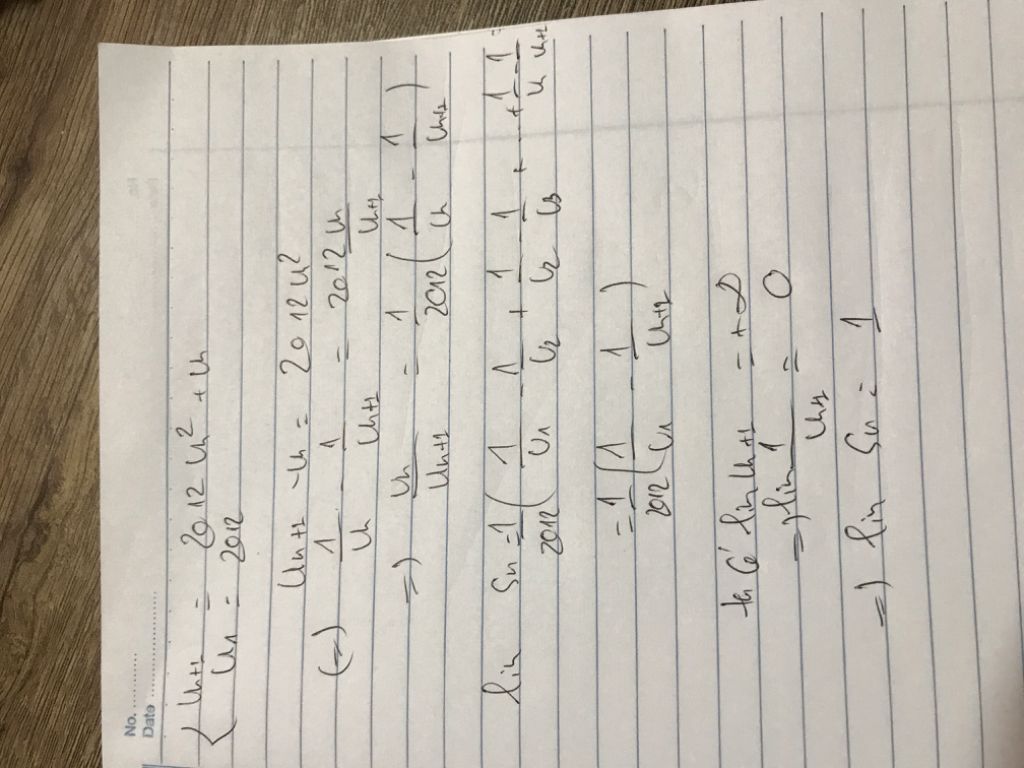 No. ............
Date ............
{ Un+1 = 2012 U² + U
U1 = 2012
Un+1 - U = 2012 U²
(=) 1/U - 1/Un+1 = 2012 U/Un+1
=) U/Un+1 = 1/2012 ( 1/U - 1/Un+1 )
lim Sn = 1/2012 ( 1/U1 - 1/U2 + 1/U2 - 1/U3 + ... + 1/U - 1/Un+1 =
= 1/2012 ( 1/U1 - 1/Un+1 )
Có lim Un+1 = +∞
=> lim 1/Un+1 = 0
=) lim Sn = 1